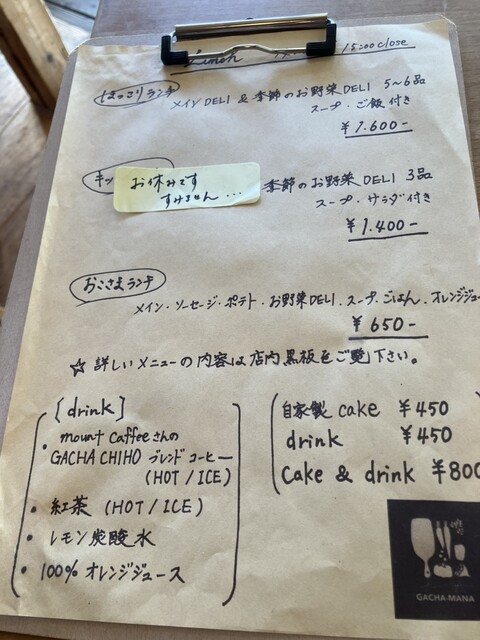 Lunch 15:00 close
ほっこりランチ
メインDELI & 季節のお野菜DELI 5~6品
スープ・ご飯付き
¥1.600-
キッ
お休みです
すみません...
季節のお野菜DELI 3品
スープ・サラダ付き
¥1.400-
おこさまランチ
メイン・ソーセージ・ポテト・お野菜DELI・スープ・ごはん・オレンジジュ
¥650-
☆詳しいメニューの内容は店内黒板をご覧下さい。
[drink]
・mount coffeeさんの
GACHA CHIHO ブレンドコーヒー
(HOT / ICE)
・紅茶 (HOT / ICE)
・レモン炭酸水
・100% オレンジジュース
自家製 cake ¥450
drink ¥450
cake & drink ¥800
GACHA-MANA